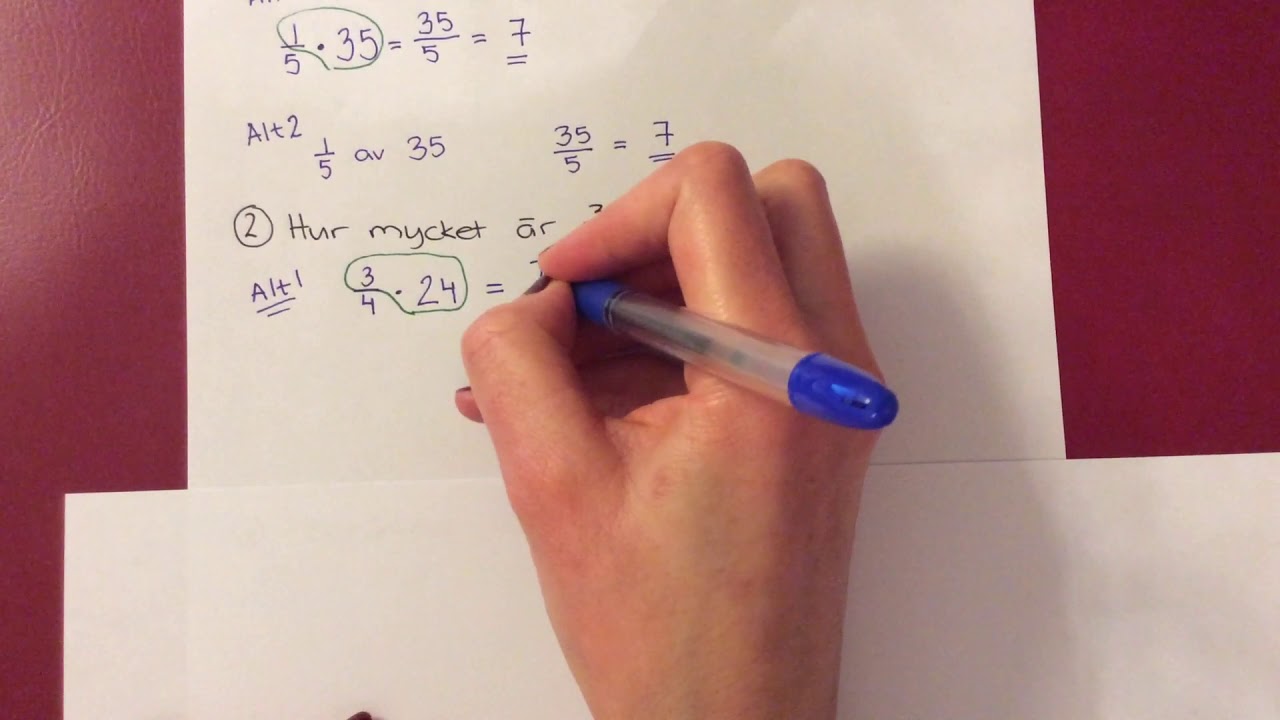 1/5 · 35 = 35/5 = 7
Alt2 1/5 av 35 35/5 = 7
② Hur mycket är
Alt1 3/4 · 24 =